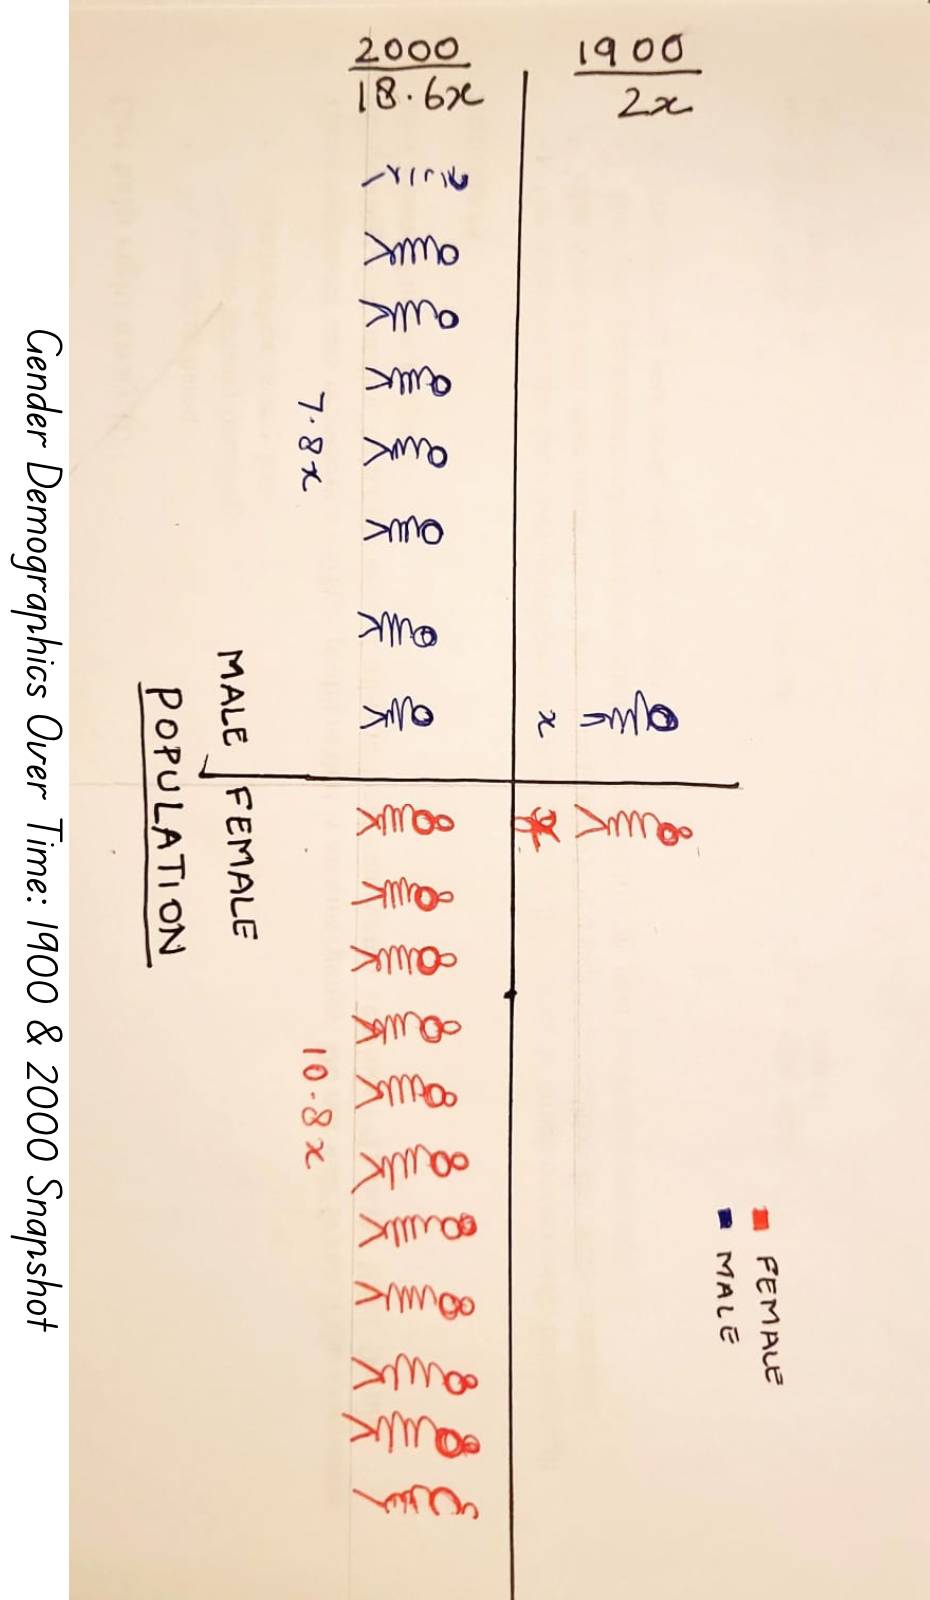 FEMALE
MALE
1900
2x
x
x
2000
18.6x
7.8x
10.8x
MALE
FEMALE
POPULATION
Gender Demographics Over Time: 1900 & 2000 Snapshot